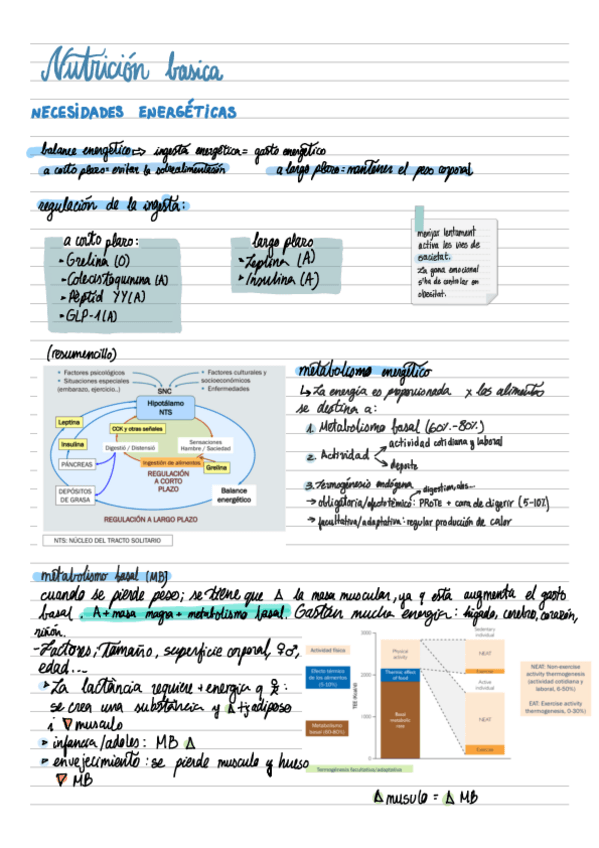 Nutrición basica
NECESIDADES ENERGÉTICAS
balance energético ⇨ ingesta energética = gasto energético
a corto plazo = evitar la sobrealimentación
a largo plazo = mantener el peso corporal
regulación de la ingesta:
a corto plazo:
- Grelina (O)
- Colecistoquinina (A)
- Péptid YY (A)
- GLP-1 (A)
largo plazo
- Leptina (A)
- Insulina (A)
menjar lentament
activa les vies de
sacietat.
La gana emocional
s'ha de controlar en
obesitat.
(resumencillo)
• Factores psicológicos
• Situaciones especiales
(embarazo, ejercicio..)
• Factores culturales y
socioeconómicos
• Enfermedades
SNC
Hipotálamo
NTS
Leptina
CCK y otras señales
Insulina
Digestió / Distensió
Sensaciones
Hambre / Saciedad
PÁNCREAS
Ingestión de alimentos
Grelina
REGULACIÓN
A CORTO
PLAZO
DEPÓSITOS
DE GRASA
Balance
energético
REGULACIÓN A LARGO PLAZO
NTS: NÚCLEO DEL TRACTO SOLITARIO
metabolismo energético
↳ La energía es proporcionada x los alimentos
se destina a:
1. Metabolismo basal (60%-80%)
2. Actividad
actividad cotidiana y laboral
deporte
3. Termogénesis endógena
digestion, abs...
→ obligatoria/ : PROTE + cara de digerir (5-10%)
→ facultativa/adaptativa: regular producción de calor
metabolismo basal (MB)
cuando se pierde peso; se tiene que Δ la masa muscular, ya q esta augmenta el gasto
basal. A + masa magra + metabolismo basal. Gastan mucha energía: hígado, cerebro, corazón,
riñón.
- Factores; Tamaño, superficie corporal, ♀♂,
edad...
▹ La lactància requiere + energía q :
se crea una substancia y Δ tj adiposo
i ∇ musculo
▹ infancia/adoles: MB Δ
▹ envejecimiento: se pierde musculo y hueso
∇ MB
Actividad física
Efecto térmico
de los alimentos
(5-10%)
Metabolismo
basal (60-80%)
Termogénesis facultativa/adaptativa
3000
2000
1000
0
Physical
activity
Thermic effect
of food
Basal
metabolic
rate
Sedentary
individual
NEAT
Exercise
Active
individual
NEAT
Exercise
NEAT: Non-exercise
activity thermogenesis
(actividad cotidiana y
laboral, 6-50%)
EAT: Exercise activity
thermogenesis, 0-30%)
Δ musulo = Δ MB